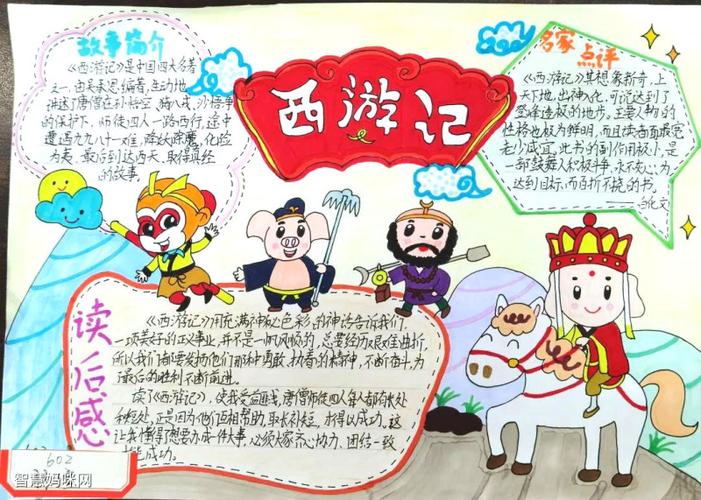 西游记
故事简介
《西游记》是中国四大名著
之一,由吴承恩编著,生动地
讲述了唐僧在孙悟空,猪八戒,沙悟净
的保护下,师徒四人一路西行,途中
遭遇九九八十一难,降妖除魔,化险
为夷,最后到达西天、取得真经
的故事。
名家点评
《西游记》其想象新奇,上
天下地,出神入化,可说达到了
登峰造极的地步。主要人物的
性格也极为鲜明,而且读者面最宽
老少咸宜。此书的副作用极小,是
一部鼓舞人积极斗争,永不灰心,为
达到目标,而百折不挠的书。
——白化文
读后感
《西游记》用充满神秘色彩的神话告诉我们,
一项美好的正义事业,并不是一帆风顺的,总要经历艰难曲折,
所以我们都要发扬他们那种勇敢、执着的精神,不断奋斗,为
最后的胜利不断前进。
读了《西游记》,使我受益匪浅,唐僧师徒四人每人都有长处
和短处,正是因为他们互相帮助,取长补短,才得以成功。这
让我懂得了想要办成一件大事,必须大家齐心协力、团结一致
才能成功。
602
智慧妈咪网